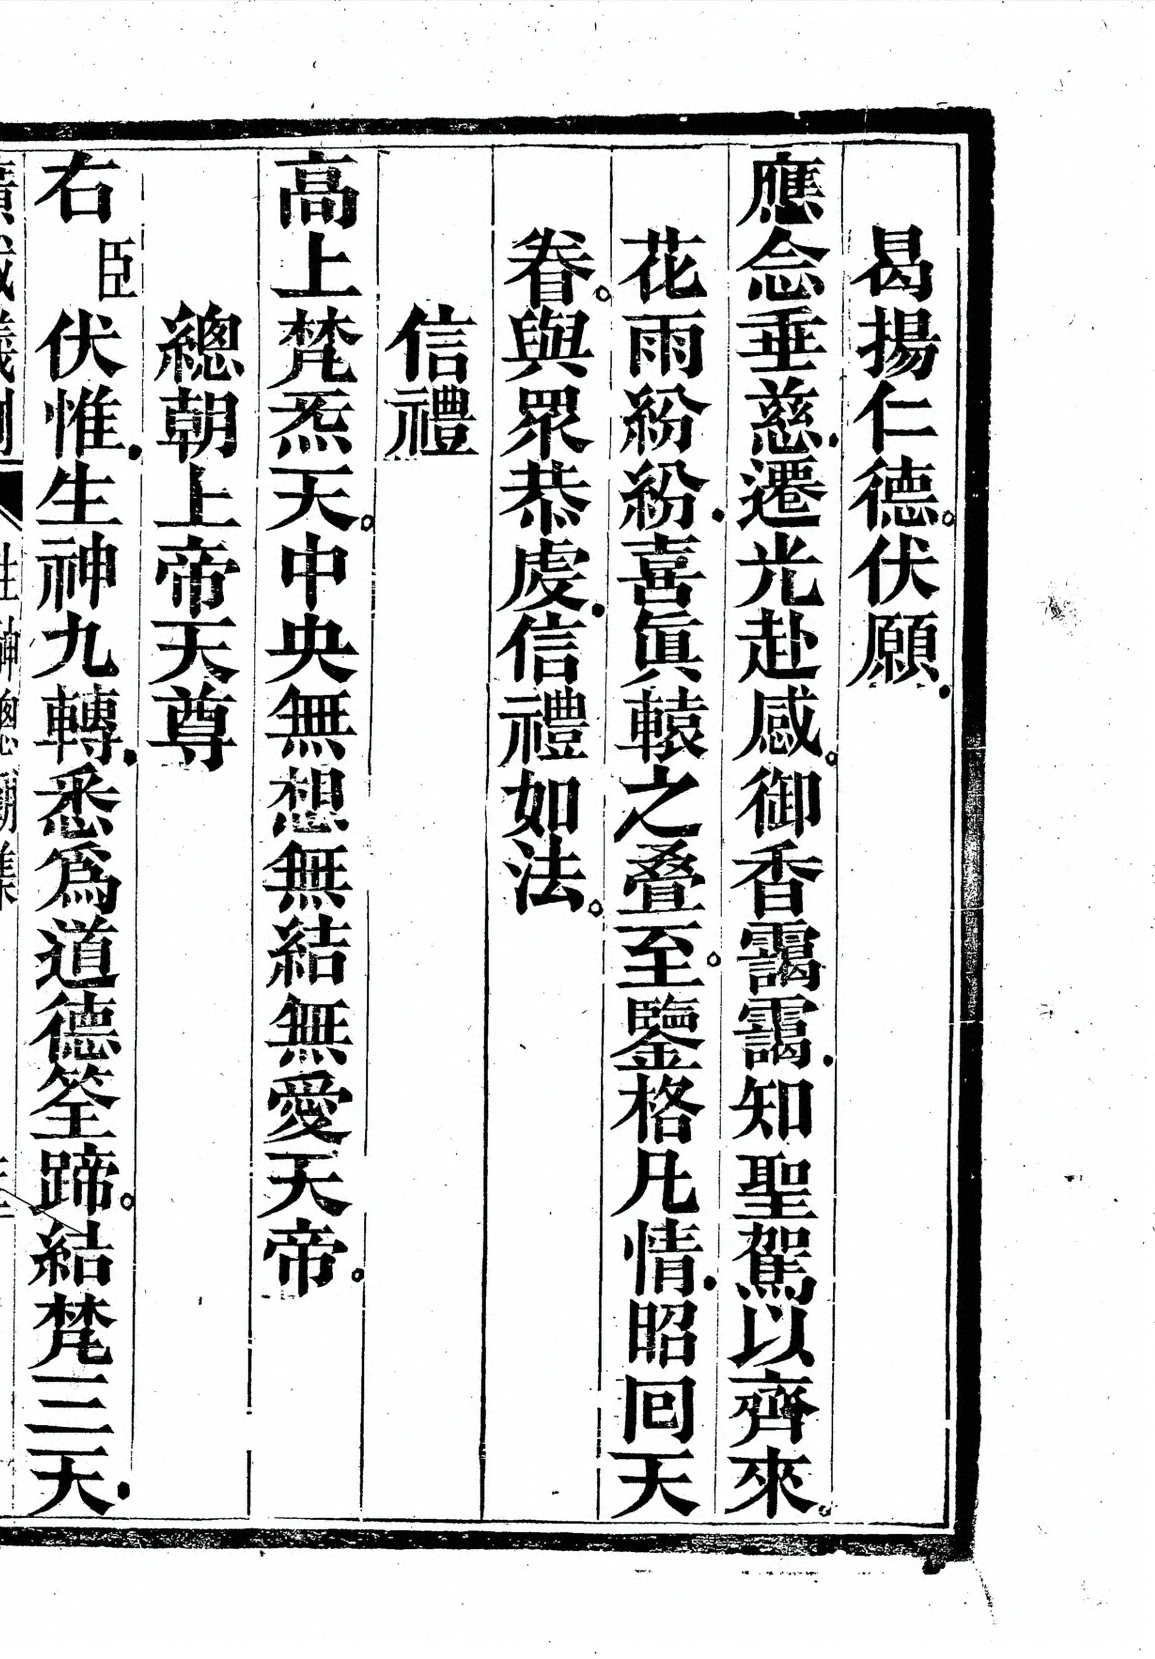 曷揚仁德。伏願．
應念垂慈．遷光赴感。御香靄靄．知聖駕以齊來。
花雨紛紛．喜眞轅之叠至。鑒格凡情．昭回天
眷。與眾恭虔．信禮如法。
信禮
高上梵炁天。中央無想無結無愛天帝。
總朝上帝天尊
右臣伏惟．生神九轉．悉爲道德筌蹄。結梵三天．